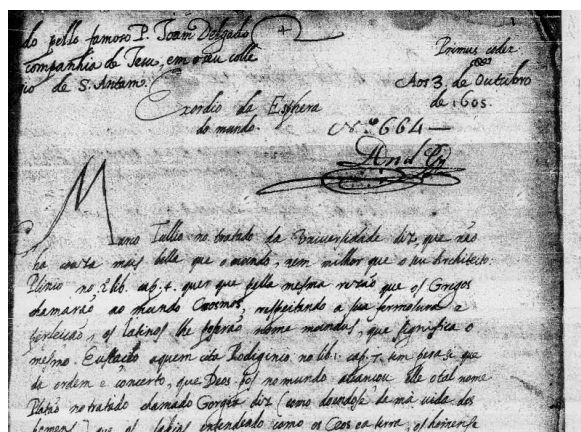 do pello famoso P. Joam Delgado
companhia de Jesu, em o seu colle
gio de S. Antam.
Primus codex
Aos 3 de Outubro
de 1605.
Exordio da Esphera
do mundo.
Nº 664
Marco Tullio no tratado da Universidade diz, que não
ha couza mais bella que o mundo, nem milhor que o seu Architecto.
Plinio no 2. lib. cap. 4. quer que pella mesma rezão que os Gregos
chamarão ao mundo Cosmos, respeitando a sua fermosura e
perfeição, os latinos lhe poserão nome mundus, que significa o
mesmo. Eustacio aquem cita Rodiginio no lib. 1. cap. 7. tem pera si que
da ordem e concerto, que Deos pos no mundo alcançou elle o tal nome
Platão no tratado chamado Gorgias diz (como doendose da má vida dos
homens) que os sabios entendião como os Ceos, a terra, os homens